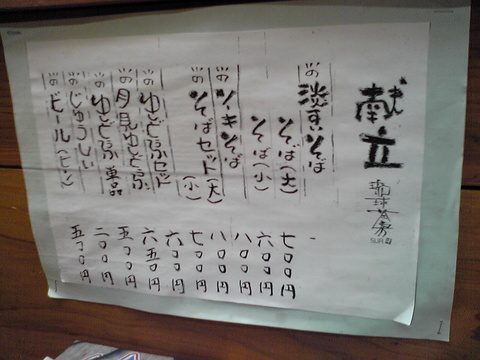 献立
琉球茶房
そば(大) 七〇〇円
そば(小) 六〇〇円
ソーキそば 八〇〇円
そばセット(大) 八〇〇円
(小) 七〇〇円
ゆどうふセット 六〇〇円
月見ゆどうふ 六五〇円
ゆどうふ 単品 五〇〇円
じゅうしい 二〇〇円
ビール(ビン) 五〇〇円